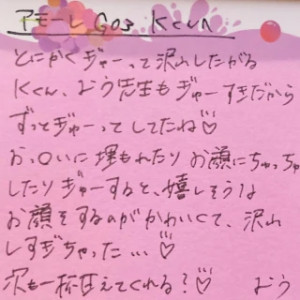 アモーレ G03 Kくん
とにかくぎゃーって沢山したがる
Kくん、よう先生もぎゃーすきだから
ずっとぎゃーってしてたね♡
おっ〇いに埋もれたりお顔にちゃっちゃ
したりぎゃーすると、嬉しそうな
お顔をするのがかわいくて、沢山
しすぎちゃった…♡
次も一杯甘えてくれる?♡ よう